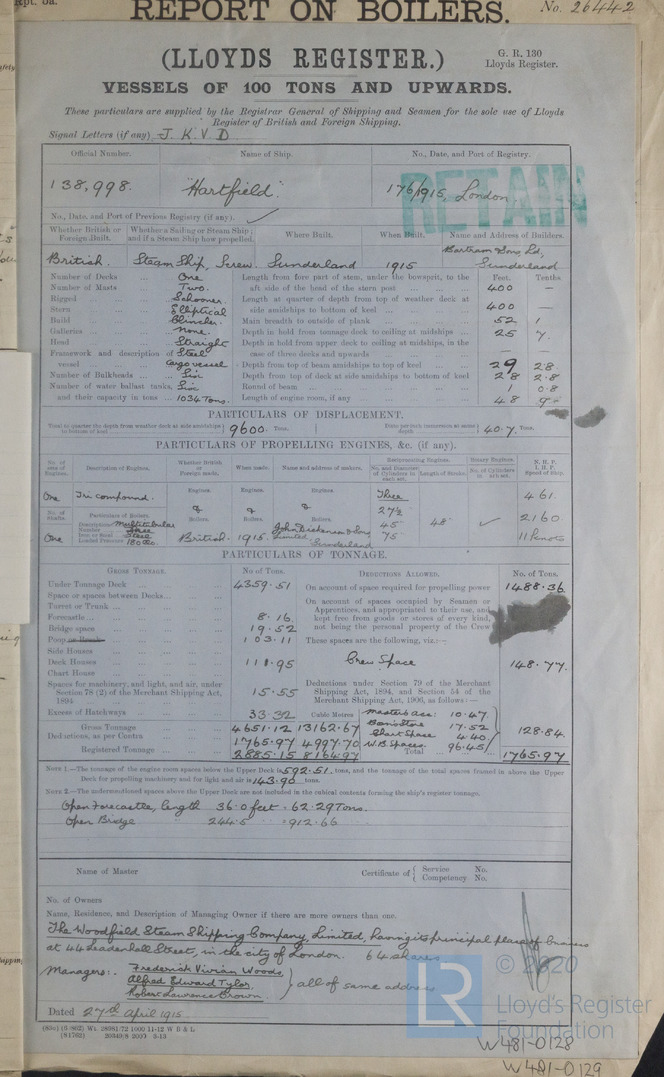 Rpt. 5a.
REPORT ON BOILERS.
No. 26442
(LLOYDS REGISTER.)
G. R. 130
Lloyds Register.
VESSELS OF 100 TONS AND UPWARDS.
These particulars are supplied by the Registrar General of Shipping and Seamen for the sole use of Lloyds
Register of British and Foreign Shipping.
Signal Letters (if any) J. K. V. D
Official Number. Name of Ship. No., Date, and Port of Registry.
138,998. "Hartfield". 176/1915, London.
RETAIN
No., Date, and Port of Previous Registry (if any).
Whether British or Foreign Built. Whether a Sailing or Steam Ship; and if a Steam Ship how propelled. Where Built. When Built. Name and Address of Builders.
British. Steam Ship, Screw. Sunderland 1915 Bartram & Sons Ld, Sunderland
Number of Decks One Length from fore part of stem, under the bowsprit, to the Feet. Tenths
Number of Masts Two. aft side of the head of the stern post 400 —
Rigged Schooner. Length at quarter of depth from top of weather deck at
Stern Elliptical side amidships to bottom of keel 400 —
Build Clincher. Main breadth to outside of plank 52 1
Galleries None. Depth in hold from tonnage deck to ceiling at midships 25 7.
Head Straight Depth in hold from upper deck to ceiling at midships, in the
Framework and description of Steel case of three decks and upwards — —
vessel Cargo vessel Depth from top of beam amidships to top of keel 29 28
Number of Bulkheads Six Depth from top of deck at side amidships to bottom of keel 28 2.8
Number of water ballast tanks, Six Round of beam 1 0.8
and their capacity in tons 1034 Tons. Length of engine room, if any 48 9
PARTICULARS OF DISPLACEMENT.
Total to quarter the depth from weather deck at side amidships to bottom of keel 9600. Tons. Ditto per inch immersion at same depth 40.7. Tons.
PARTICULARS OF PROPELLING ENGINES, &c. (if any).
No. of sets of Engines. Description of Engines. Whether British or Foreign made. When made. Name and address of makers. Reciprocating Engines. Rotary Engines. N.H.P. I.H.P. Speed of Ship.
No. and Diameter of Cylinders in each set. Length of Stroke. No. of Cylinders in each set.
One Tri compound. Engines. Engines. Engines. Three 461.
No. of Shafts. Particulars of Boilers. & & & 27½ 2160
One Description Multitubular Boilers. Boilers. Boilers. 45" 48"
Number Three
Iron or Steel Steel British. 1915. John Dickinson & Sons Limited, Sunderland 75" 11 knots
Loaded Pressure 180 lbs.
PARTICULARS OF TONNAGE.
GROSS TONNAGE. No of Tons. DEDUCTIONS ALLOWED. No. of Tons.
Under Tonnage Deck 4359.51 On account of space required for propelling power 1488.36
Space or spaces between Decks On account of spaces occupied by Seamen or
Turret or Trunk Apprentices, and appropriated to their use, and
Forecastle 8.16. kept free from goods or stores of every kind,
Bridge space 19.52 not being the personal property of the Crew
Poop or Break 103.11 These spaces are the following, viz:—
Side Houses
Deck Houses 111.95 Crew Space 148.77.
Chart House
Spaces for machinery, and light, and air, under Deductions under Section 79 of the Merchant
Section 78 (2) of the Merchant Shipping Act, Shipping Act, 1894, and Section 54 of the
1894 15.55 Merchant Shipping Act, 1906, as follows:—
Excess of Hatchways 33.32 Cubic Metres Masters acc: 10.47.
Gross Tonnage 4651.12 13162.67 Bosn's Store 17.52 128.84
Deductions, as per Contra 1765.97 4997.70 Chart Space 4.40
Registered Tonnage 2885.15 8164.97 W.B. Spaces. 96.45 Total 1765.97
NOTE 1.—The tonnage of the engine room spaces below the Upper Deck is 592.51. tons, and the tonnage of the total spaces framed in above the Upper
Deck for propelling machinery and for light and air is 143.90 tons.
NOTE 2.—The undermentioned spaces above the Upper Deck are not included in the cubical contents forming the ship's register tonnage.
Open Forecastle, length 36.0 feet = 62.29 Tons.
Open Bridge " 244.5 " = 912.66
Name of Master Certificate of { Service No.
Competency No.
No. of Owners
Name, Residence, and Description of Managing Owner if there are more owners than one.
The Woodfield Steam Shipping Company, Limited, having its principal place of business
at 44 Leadenhall Street, in the city of London. 64 shares
Managers:. Frederick Vivian Woods,
Alfred Edward Tylor,
Robert Lawrence Brown. } all of same address
Dated 27th April 1915.
LR
© 2020
Lloyd's Register
Foundation
W481-0128
W481-0129